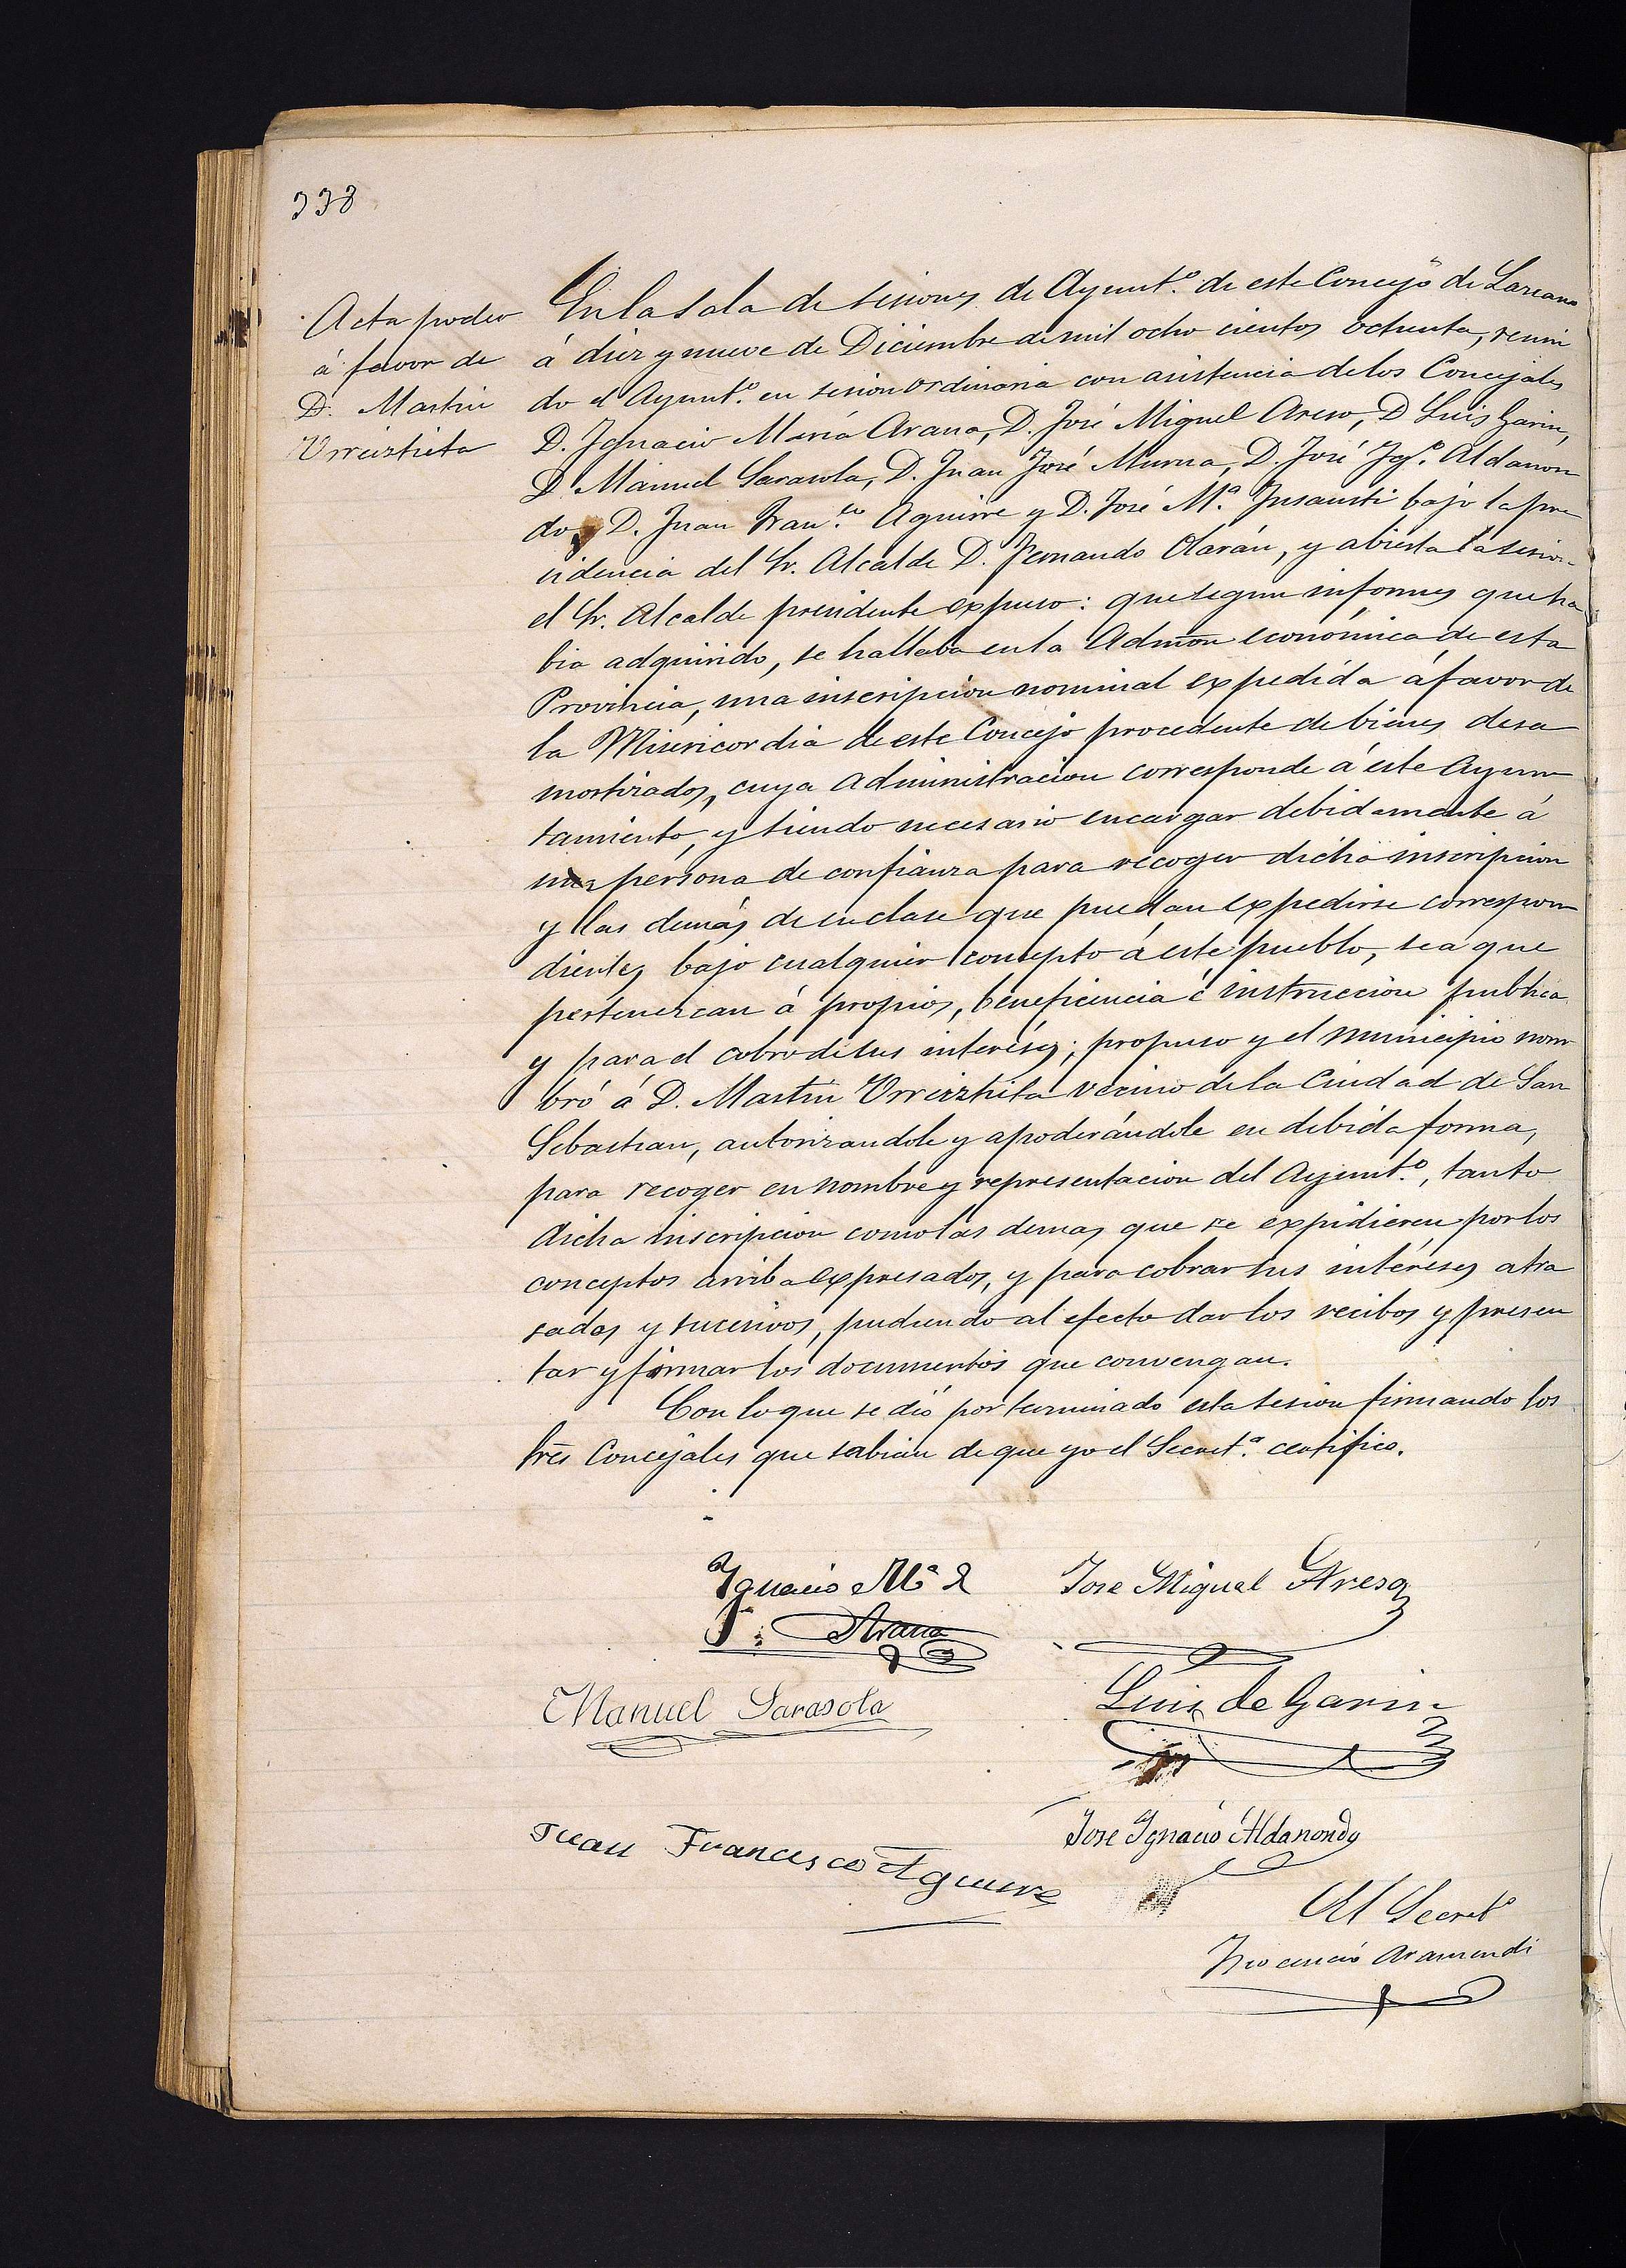 338
Acta poder
á favor de
D. Martin
Urreiztieta
En la Sala de sesiones de Ayunt.º de este Concejo de Lazcano
á diez y nueve de Diciembre de mil ocho cientos ochenta, reuni
do el Ayunt.º en sesion ordinaria con asistencia de los Concejales
D. Ignacio María Arana, D. José Miguel Areso, D Luis Garin,
D Manuel Sarasola, D. Juan José Murua, D. José Ign.º Aldanon
do, D. Juan Fran.co Aguirre y D. José M.ª Insausti bajo la pre
sidencia del Sr. Alcalde D. Fernando Olarán, y abierta la sesion
el Sr. Alcalde presidente expuso: que segun informes que ha
bia adquirido, se hallaba en la Admon económica de esta
Provincia, una inscripcion nominal expedida á favor de
la Misericordia de este Concejo procedente de bienes desa
mortizados, cuya administracion corresponde á este Ayun
tamiento, y siendo necesario encargar debidamente á
una persona de confianza para recoger dicha inscripcion
y las demás de su clase que puedan expedirse correspon
dientes bajo cualquier concepto á este pueblo, sea que
pertenezcan á propios, beneficencia é instruccion publica
y para el cobro de sus interéses; propuso y el municipio nom
bró á D. Martin Urreiztieta vecino de la Ciudad de San
Sebastian, autorizandole y apoderándole en debida forma,
para recoger en nombre y representacion del Ayunt.º, tanto
dicha inscripcion como las demas que se expidieren por los
conceptos arriba expresados, y para cobrar sus intéreses atra
sados y sucesivos, pudiendo al efecto dar los recibos y presen
tar y firmar los documentos que convengan.
Con lo que se dió por terminado esta sesion firmando los
Sres Concejales que sabian de que yo el Secret.º certifico.
Ignacio Mª
Arana
Jose Miguel Areso
Manuel Sarasola
Luis de Garin
Juan Francisco Aguirre
Jose Ignacio Aldanondo
El Secretº
Inocencio Aramendi